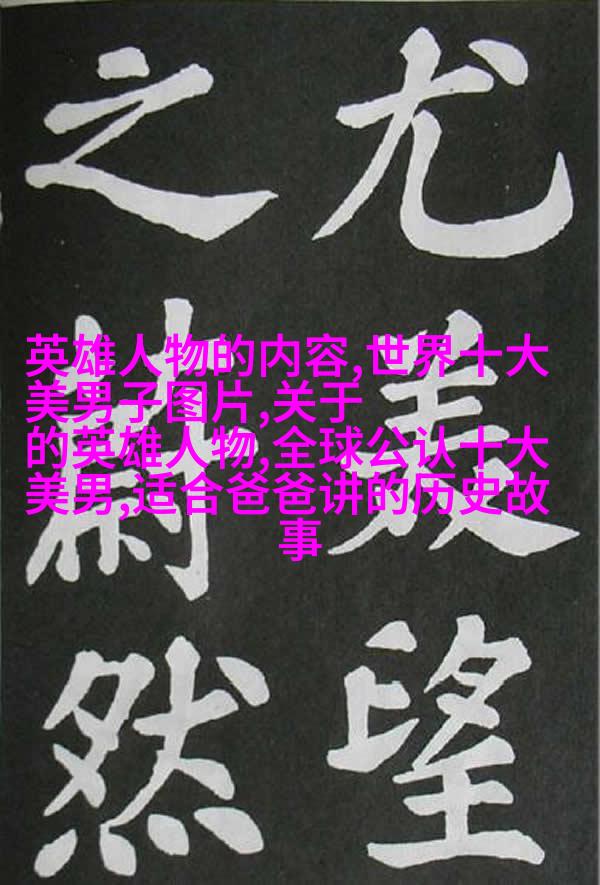 尤美望
之蔚然
英雄人物的内容,世界十大
美男子图片,关于
的英雄人物,全球公认十大
美男,适合爸爸讲的历史故
事